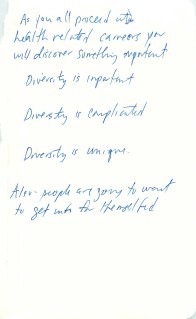 As you all proceed into
health related careers you
will discover something important
Diversity is important
Diversity is complicated
Diversity is unique.
Also people are going to want
to get into for themselfed